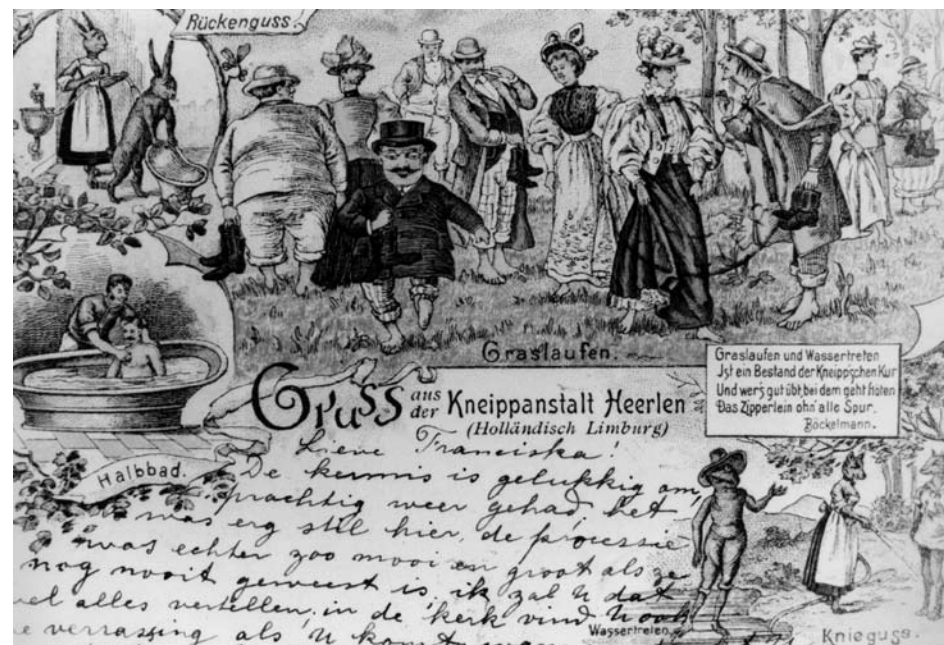 Rückenguss.
Graslaufen.
Graslaufen und Wassertreten
Jst ein Bestand der Kneipp'schen Kur
Und wer's gut übt, bei dem geht flöten
Das Zipperlein ohn' alle Spur.
Böckelmann.
Gruss aus der Kneippanstalt Heerlen
(Holländisch Limburg)
Halbbad.
Lieve Franciska!
De kermis is gelukkig om,
prachtig weer gehad, het
was erg stil hier, de processie
was echter zoo mooi en groot als ze
nog nooit geweest is, ik zal U dat
wel alles vertellen, in de kerk vind U ook
verrassing als U komt
Wassertreten.
Knieguss.